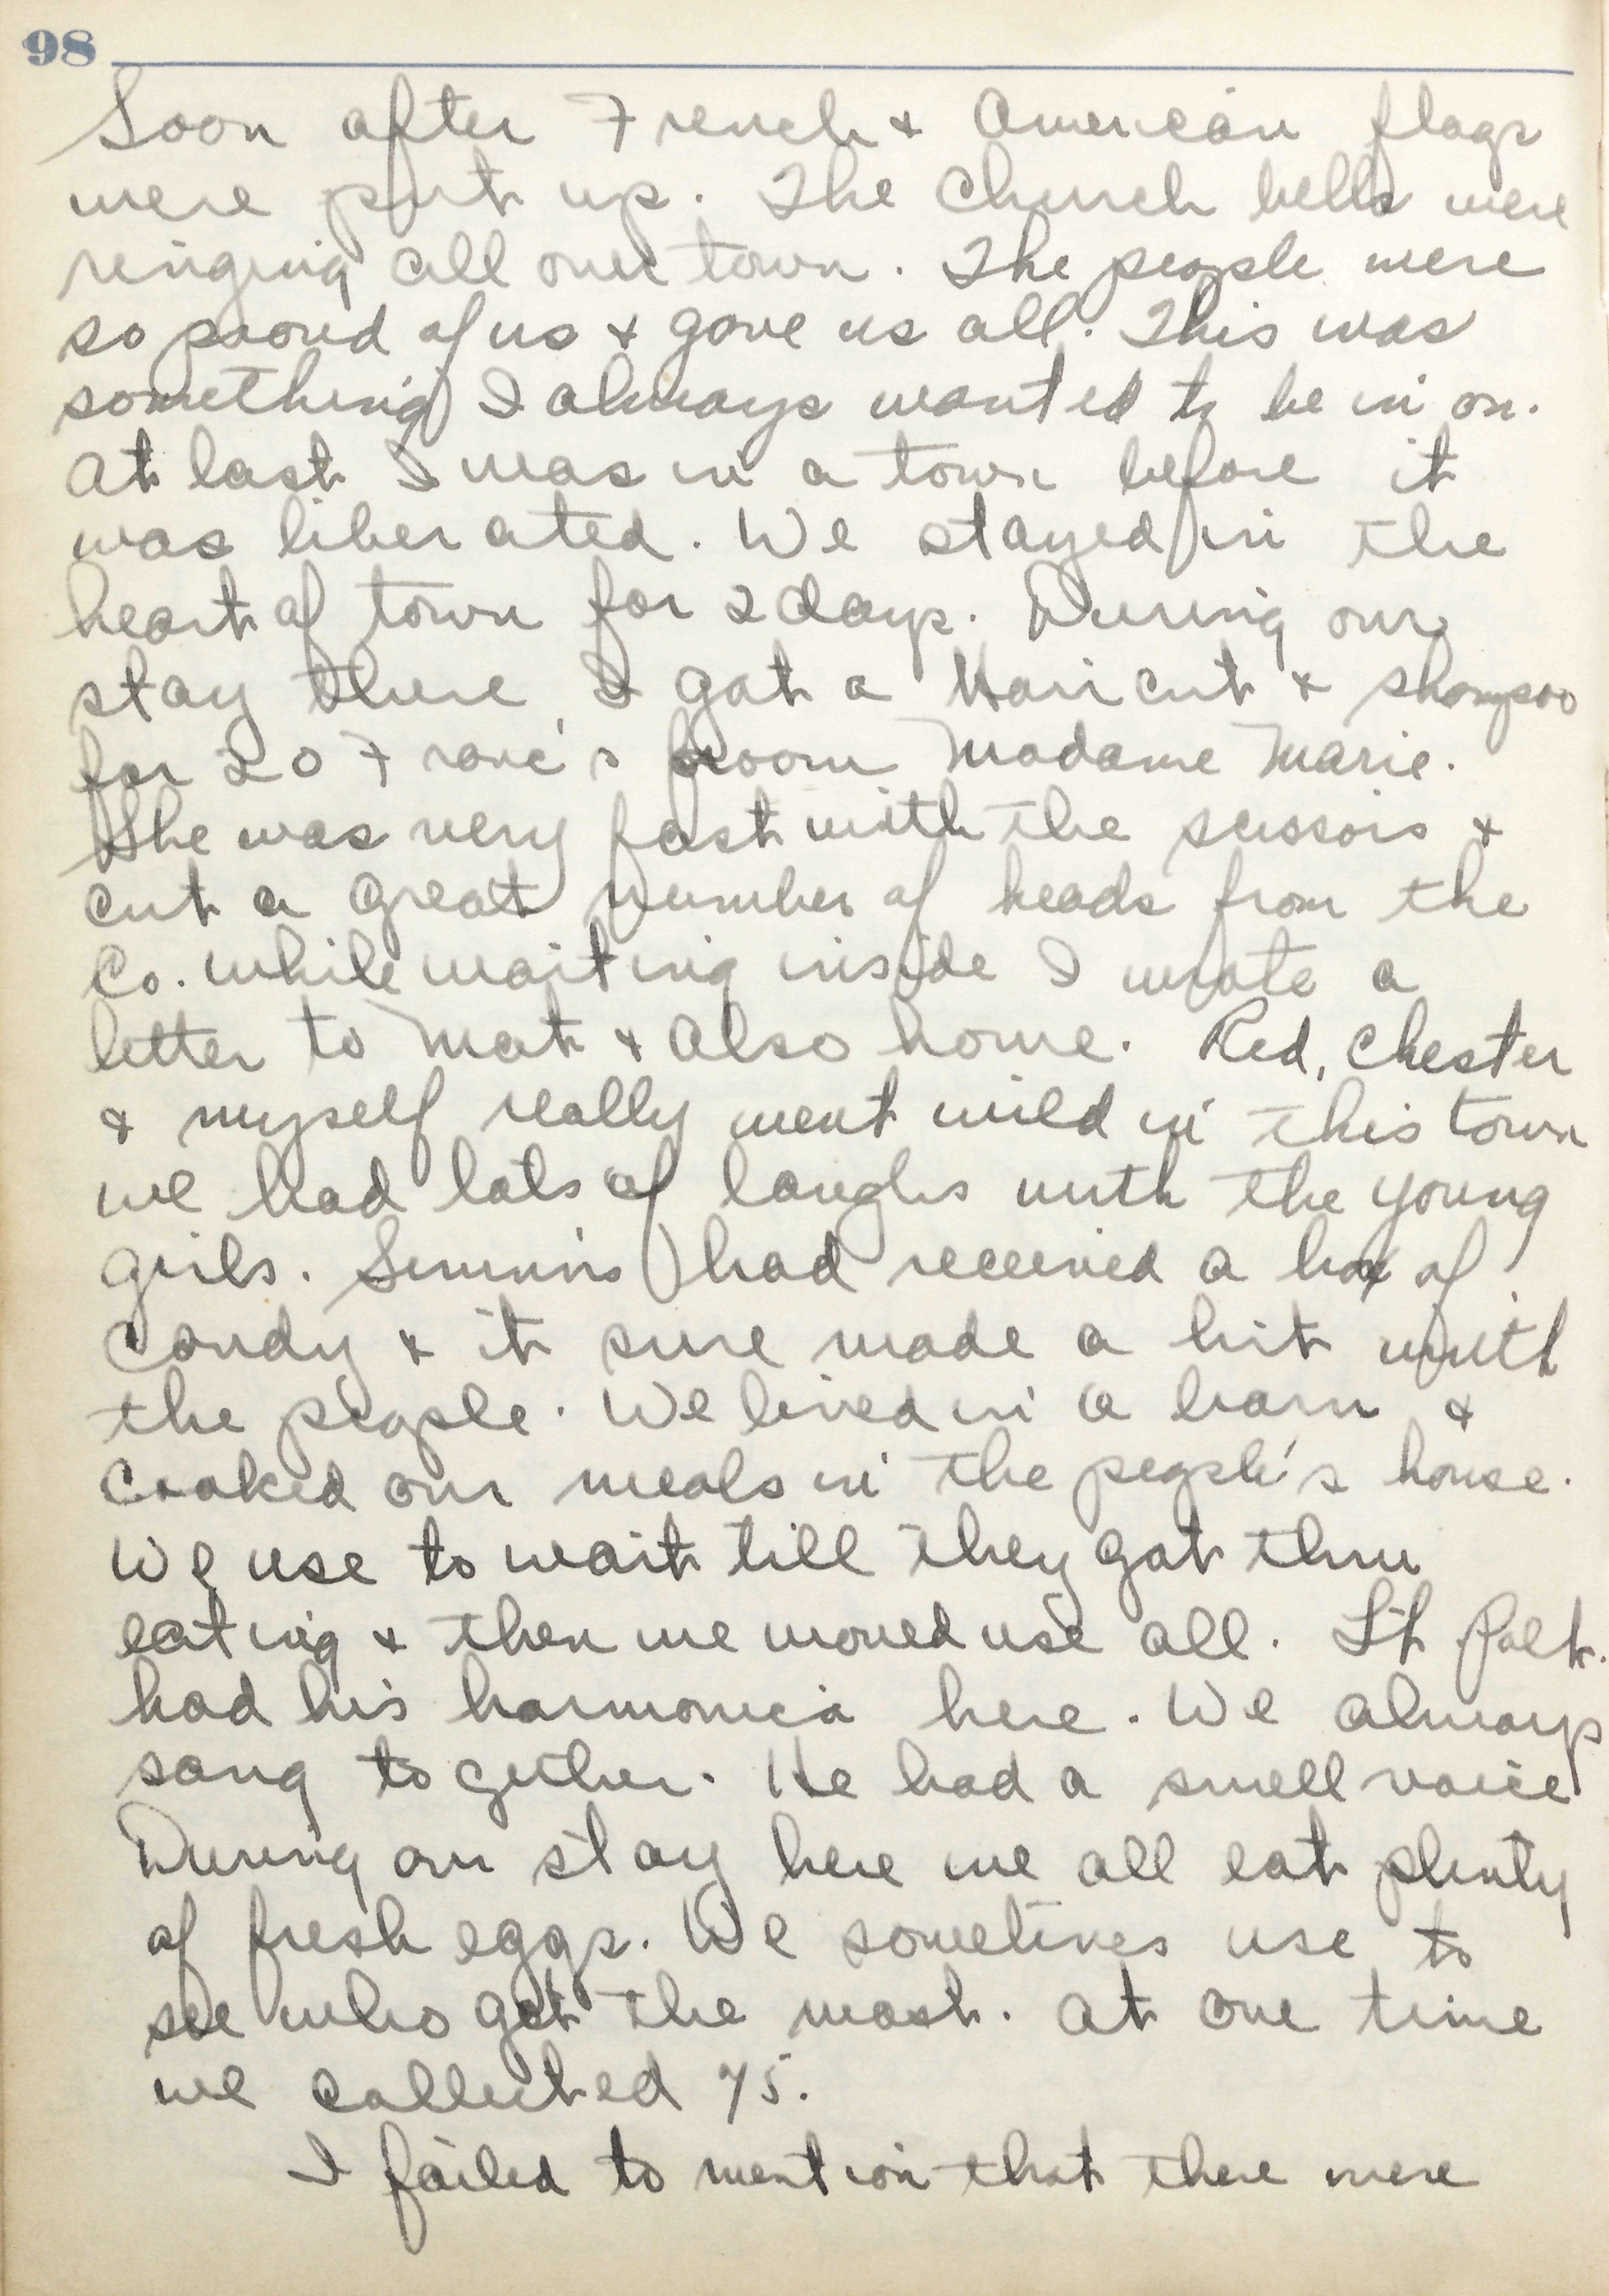 98
Soon after French & American flags
were put up. The Church bells were
ringing all over town. The people were
so proud of us & gave us all. This was
something I always wanted to be in on.
At last I was in a town before it
was liberated. We stayed in the
heart of town for 2 days. During our
stay there, I got a Hair cut & shampoo
for 20 Franc's froom Madame Marie.
She was very fast with the scissors &
cut a great number of heads from the
Co. while waiting inside I wrote a
letter to Mat & also home. Red, Chester
& myself really went wild in this town
we had lots of laughs with the young
girls. had received a box of
Candy & it sure made a hit with
the people. We lived in a barn &
Cooked our meals in the people's house.
We use to wait till they got thru
eating & then we moved use all. Lt
had his harmonica here. We always
sang together. He had a swell voice
During our stay here we all eat plenty
of fresh eggs. We sometimes use to
see who got the most. At one time
we collected 75.
I failed to mention that there were